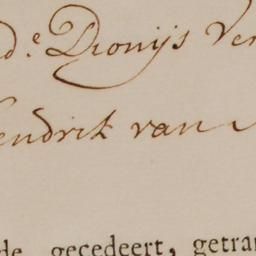 d.e Dionijs Ver
endrik van
de gecedeert, getran